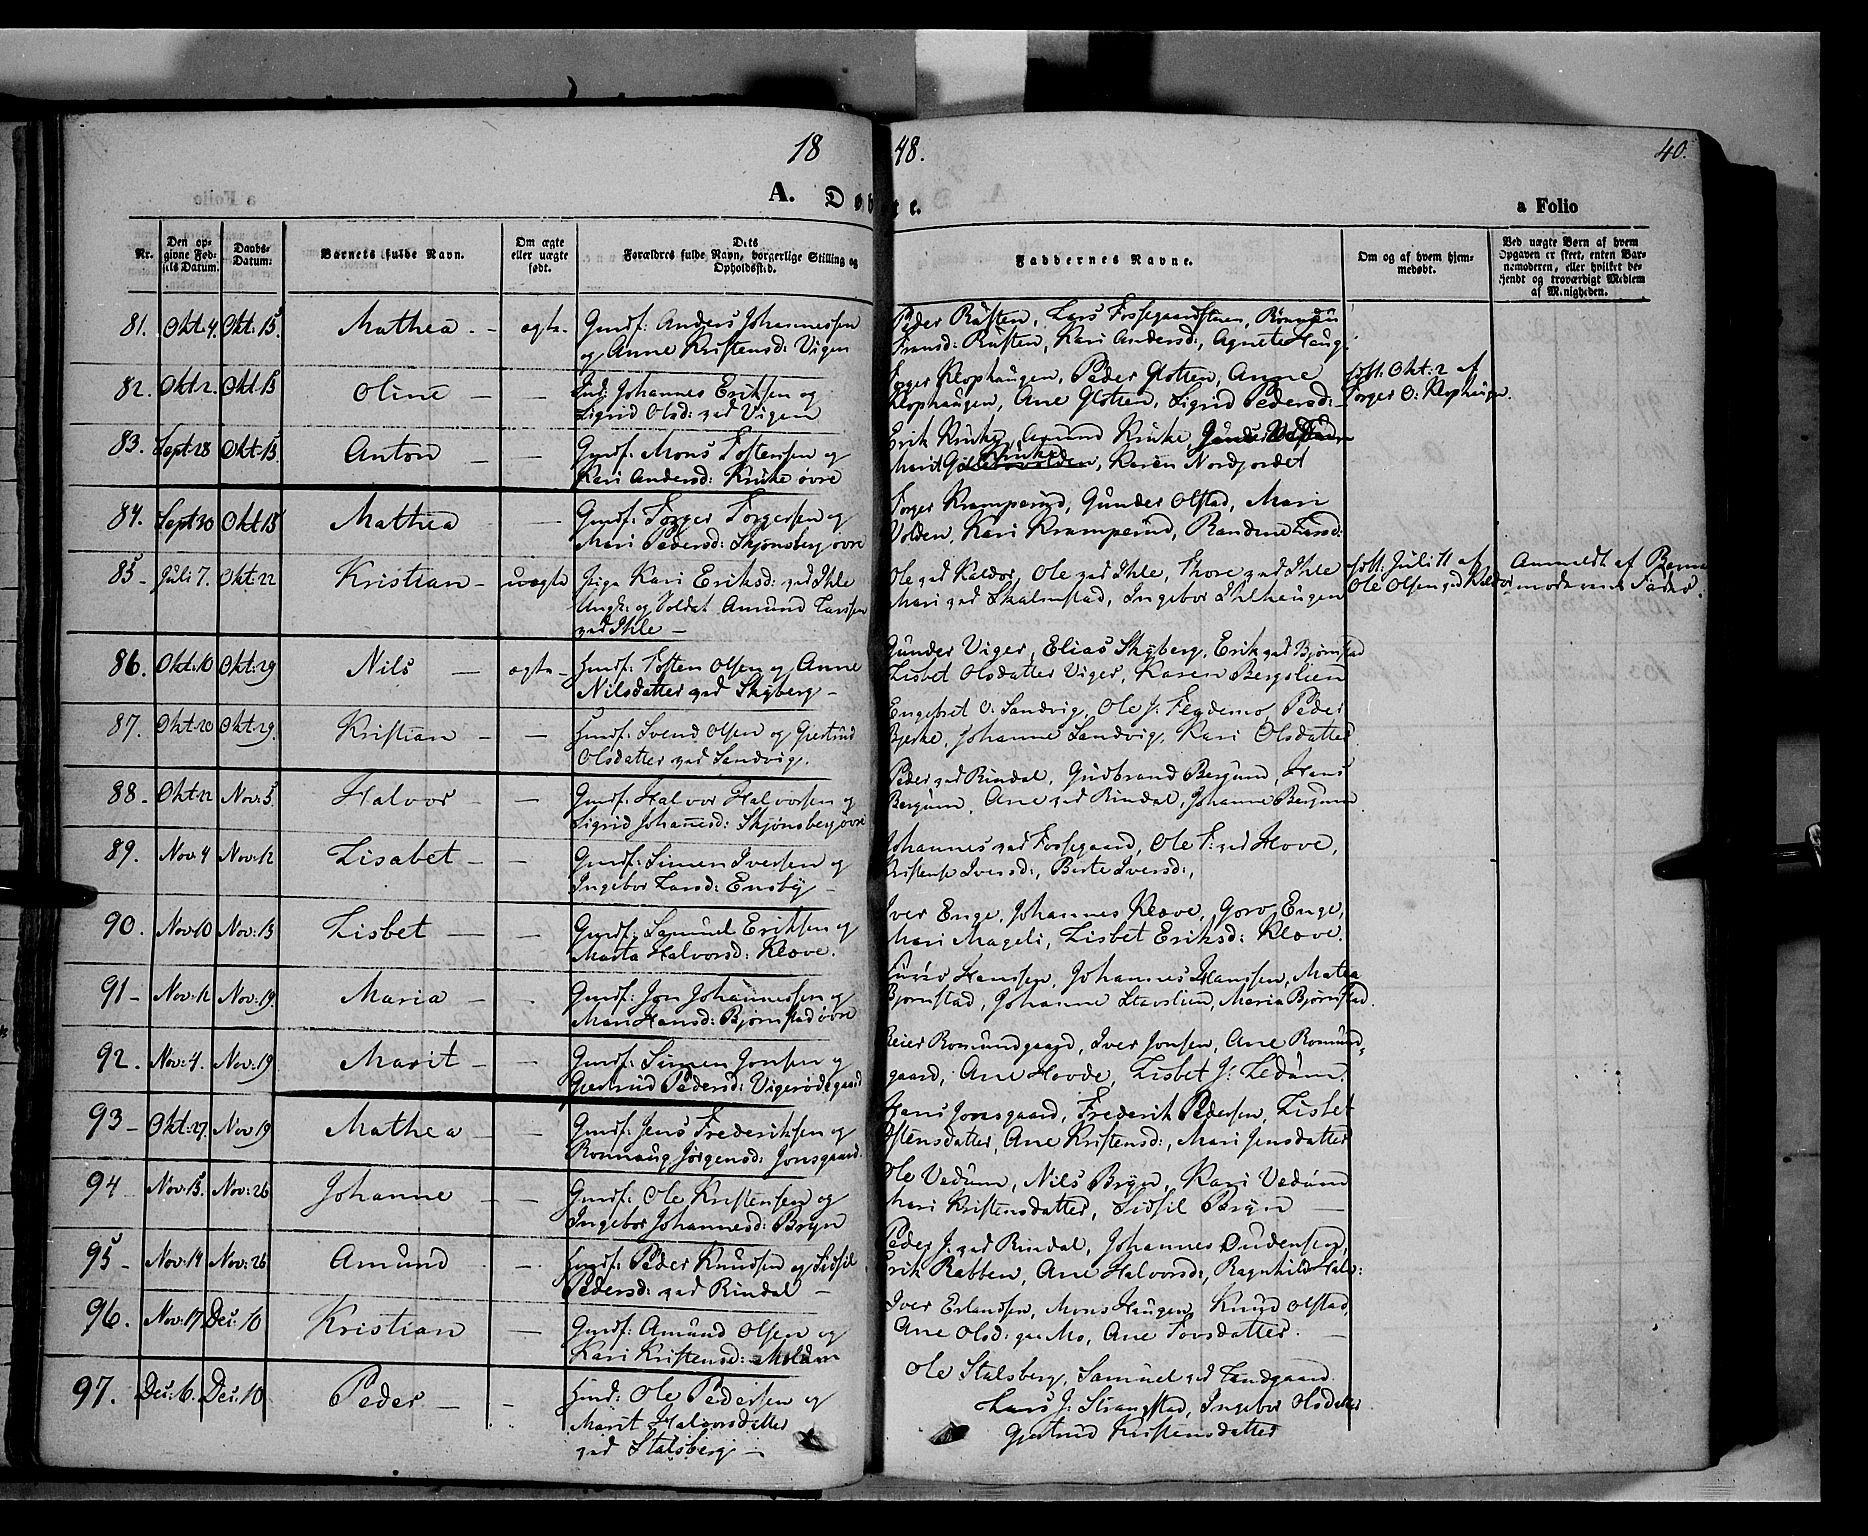 18 48. 40.
A. Døbte. a Folio
Nr. Den opgivne Fødsels Datum. Daabs-Datum. Barnets fulde Navn. Om ægte eller uægte født. Dets Forældres fulde Navn, borgerlige Stilling og Opholdssted. Faddernes Navne. Om og af hvem hjemmedøbt. Ved uægte Børn af hvem Opgaven er skeet, enten Barnemoderen, eller hvilket bekjendt og troværdigt Medlem af Menigheden.
81. Okt: 4. Okt: 15. Mathea - ægte - Gmdf: Anders Johannessen Peder Rusten, Lars Fossegaardstuen, Rønnau
og Anne Kristensd: Vigen Fransd: Rusten, Kari Andersd:, Agnete Haug.
82. Okt: 2. Okt 15 Oline - - Ind: Johannes Eriksen og Torger Klophaugen, Peder Glotten, Anne hjft: Okt: 2 af
Sigrid Olsd: gad Vigen Klophaugen, Ane Glotten, Sigrid Pedersd: Torger O: Klophaugen.
83. Sept: 28 Okt: 15. Anton - - Gmdf: Mons Tostensen og Erik Kruke, Amund Kruke,
Kari Andersd: Kruke øvre Marit Kruke, Karen Nordjordet
84. Sept 30 Okt 15 Mathea - Gmdf: Torger Torgersen og Torger Kramperud, Gunder Olstad, Mari
Mari Pedersd: Skjønsberg øvre Volden, Kari Kramperud, Randine Larsd:
85 - Juli 7. Okt: 22 Kristian - uægte Pige Kari Eriksd: gad Ihle Ole gad Kaldor, Ole gad Ihle, Thore gad Ihle hjft: Juli 11 af Anmeldt af Barne
Ungk: og Soldat Amund Larssen Mari gad Skalmstad, Ingebor Ihlhaugen Ole Olsen gad Kaldor moderens Fader.
gad Ihle -
86. Okt: 10 Okt: 29 Nils - ægte - Gmdf: Tosten Olsen og Anne Gunder Viger, Elias Skyberg, Erik gad Bjørnstad
Nilsdatter gad Skyberg - Lisbet Olsdatter Viger, Karen Bergslien
87. Okt: 20 Okt: 29. Kristian - - Gmdf: Svend Olsen og Gjertrud Engebret O: Sandvig, Ole J: Flademo, Peder
Olsdatter gad Sandvig. Bjerke, Johanne Sandvig, Kari Olsdatter
88 - Okt: 22 Nov: 5. Halvor - - Gmdf: Halvor Halvorsen og Peder gad Rindal, Gudbrand Bergum, Hans
Sigrid Johansd: Skjønsberg øvre Bergum, Ane gad Rindal, Johanne Bergum
89. Nov: 4 Nov: 12 Lisabet - - Gmdf: Simen Iversen og Johannes gad Fossegaard, Ole T: gad Hove,
Ingebor Larsd: Ensby - Kristense Iversd:, Berte Iversd:,
90. Nov: 10 Nov: 13 Lisbet - - Gmdf: Samuel Eriksen og Iver Enge, Johannes Kløve, Goro Enge,
Marta Halvorsd: Kløve. Mari Mageli, Lisbet Eriksd: Kløve.
91 - Nov: 12 Nov: 19. Maria - - Gmdf: Jon Johannessen og Hanssen, Johannes Hanssen, Matea
Mari Hansd: Bjørnstad øvre Bjørnstad, Johanne Stavslien, Maria Bjørnstad.
92. Nov: 4. Nov: 19 Marit - - Gmdf: Simen Jonsen og Reier Romundgaard, Iver Jonsen, Ane Romund,
Gjertrud Pedersd: Vigerødegaard gaard, Ane Hovde, Lisbet J: Ledum.
93 - Okt: 27. Nov 19 Mathea - - Gmdf: Jens Frederiksen og Hans Jonsgaard, Frederik Pedersen, Lisbet
Rønnaug Jørgensd: Jonsgaard. Ostensdatter, Ane Kristensd:, Mari Jensdatter
94 Nov: 13. Nov: 26 Johanne - - Gmdf: Ole Kristensen og Ole Vedum, Nils Bryn, Kari Vedum
Ingebor Johannesd: Bryn Mari Kristensdatter, Sidsil Bryn -
95 - Nov: 14 Nov: 26 Amund - Gmdf: Peder Knudsen og Sidsil Peder J: gad Rindal, Johannes Audensen,
Pedersd: gad Rindal - Erik Rabben, Ane Halvorsd:, Ragnhild Halv:
96. Nov: 17 Dec: 10 Kristian - Gmdf: Amund Olsen og Iver Erlandsen, Mons Haugen, Knud Olstad,
Kari Kristensd: Melum Ane Olsd: gad Mo, Ane Tovsdatter. -
97. Dec: 6. Dec: 10 Peder - - Gmd: Ole Pedersen og Ole Stalsberg, Samuel gad Landgaard
Marit Halvorsdatter Lars J: Strangstad, Ingebor Olsdatter
gad Stalsberg - Gjertrud Kristensdatter